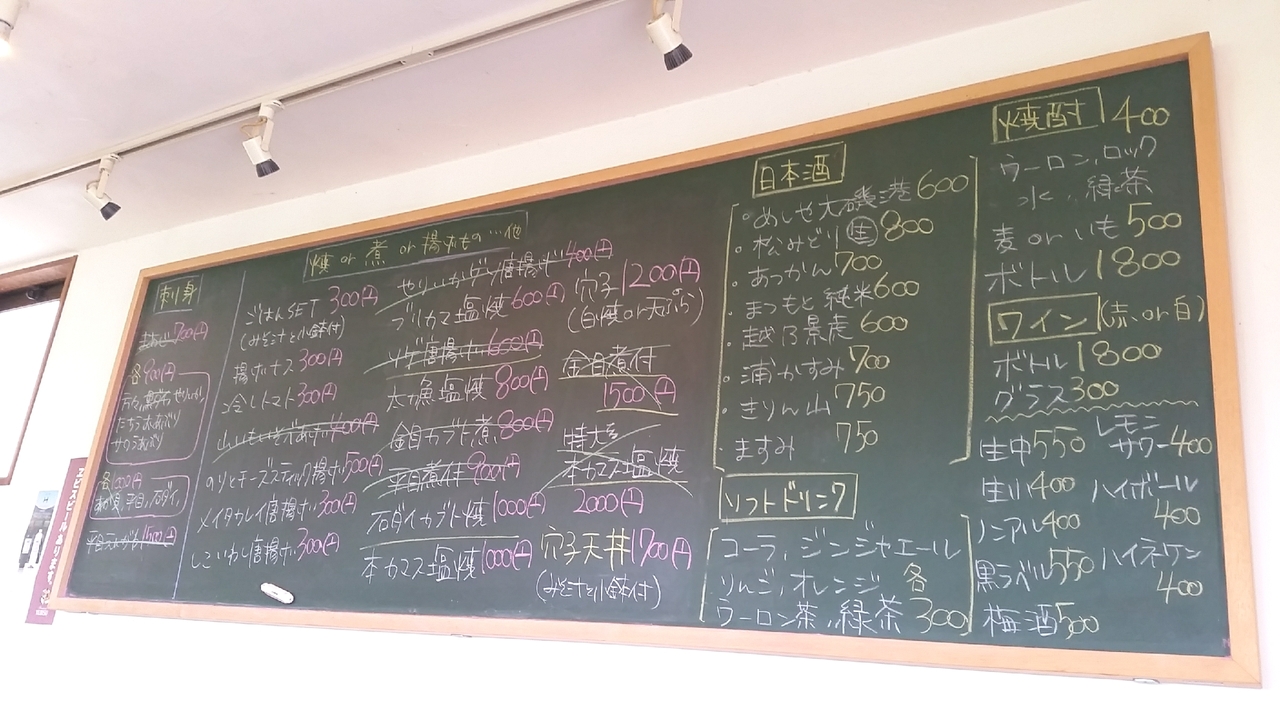 刺身
700円
各900円
サワラあぶり
各1000円
平目、石ダイ
1500円
焼 or 煮 or 揚げもの…他
ごはんSET 300円
(みそ汁と小鉢付)
揚げナス 300円
冷しトマト 300円
400円
のりとチーズスティック揚げ 500円
メイタカレイ唐揚げ 300円
しこいわし唐揚げ 300円
やりいかゲソ唐揚げ 400円
ブリカマ塩焼 600円
唐揚げ 600円
太刀魚塩焼 800円
金目カブト煮 800円
平目煮付 900円
石ダイカブト焼 1000円
本カマス塩焼 1000円
穴子 1200円
(白焼 or 天ぷら)
金目煮付
1500円
特大
本カマス塩焼
2000円
穴子天丼 1700円
(みそ汁と小鉢付)
日本酒
・めしや大磯港 600
・松みどり 生 800
・あっかん 700
・まつもと 純米 600
・越乃景虎 600
・浦かすみ 700
・きりん山 750
・ますみ 750
ソフトドリンク
コーラ、ジンジャエール
りんご、オレンジ 各
ウーロン茶、緑茶 300
焼酎 400
ウーロン、ロック
水、緑茶
麦 or いも 500
ボトル 1800
ワイン (赤 or 白)
ボトル 1800
グラス 300
生中 550
生小 400
ノンアル 400
黒ラベル 550
梅酒 500
レモン
サワー 400
ハイボール
400
ハイネケン
400
ヱビスビールあります。